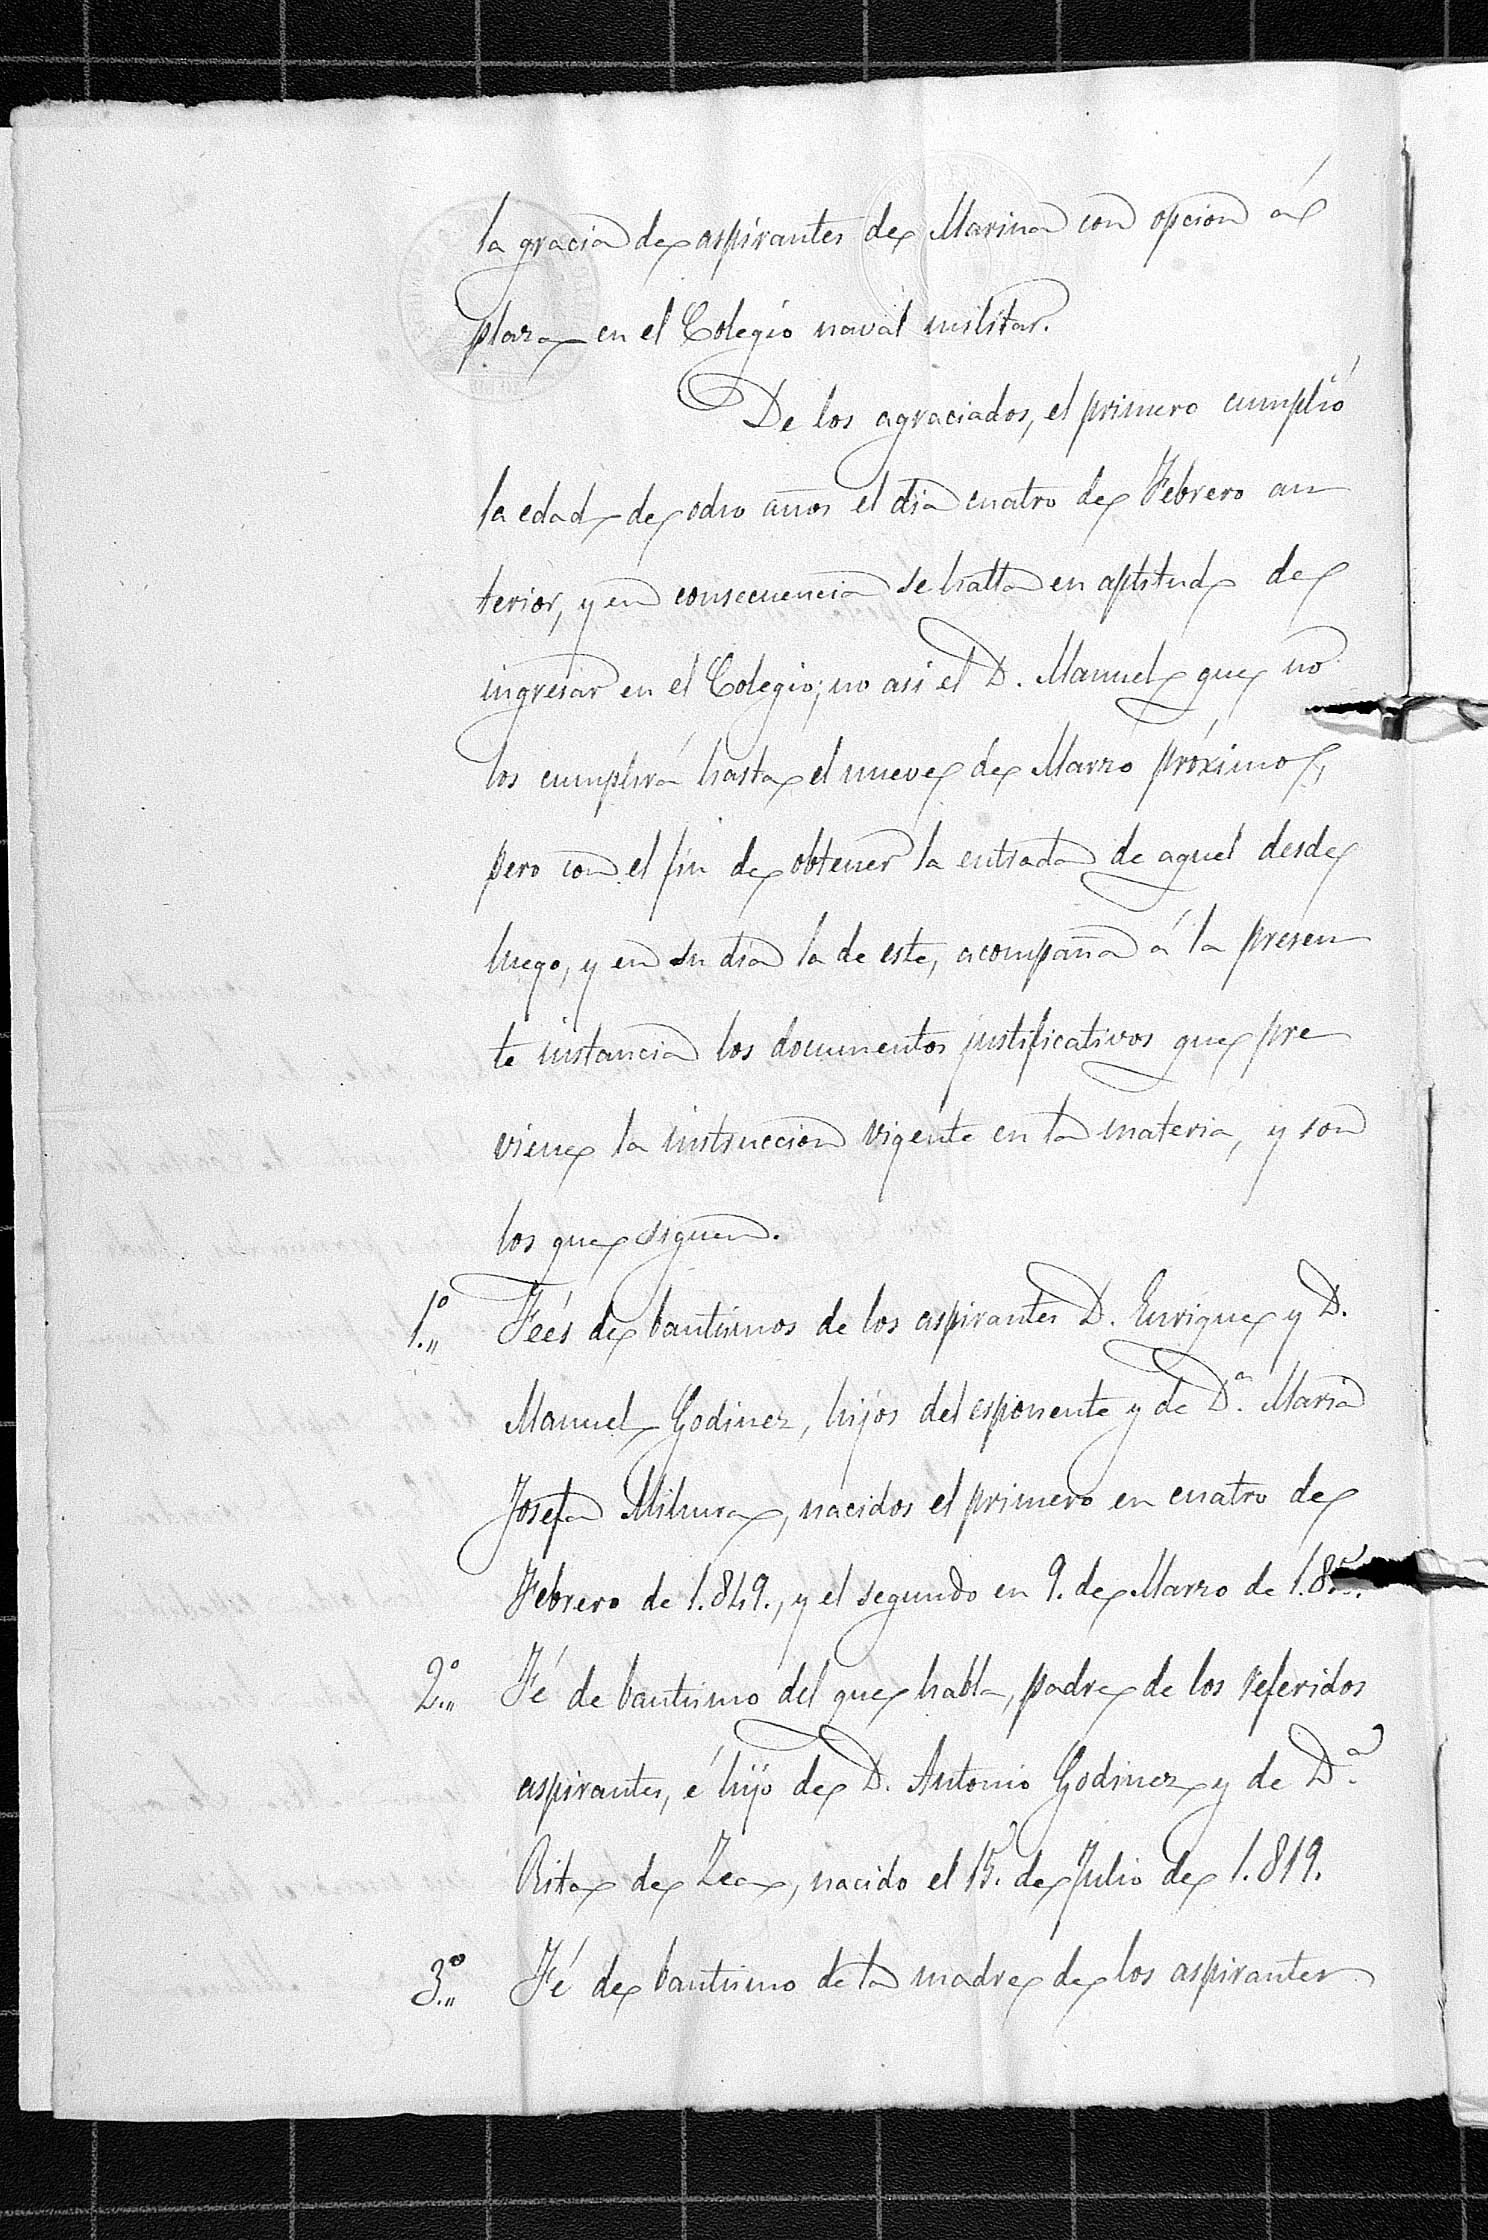 la gracia de aspirantes de Marina con opcion á
plaza en el Colegio naval militar.
De los agraciados, el primero cumplió
la edad de ocho años el dia cuatro de Febrero an
terior, y en consecuencia se halla en aptitud de
ingresar en el Colegio; no asi el D. Manuel que no
los cumplirá hasta el nueve de Marzo próximo,
pero con el fin de obtener la entrada de aquel desde
luego, y en su dia la de este, acompaña á la presen
te instancia los documentos justificativos que pre
viene la instruccion vigente en la materia, y son
los que siguen.
1.º Fées de bautismos de los aspirantes D. Enrique y D.
Manuel Godinez, hijos del esponente y de D.ª Maria
Josefa Mihura, nacidos el primero en cuatro de
Febrero de 1.849., y el segundo en 9. de Marzo de
2.º Fé de bautismo del que habla, padre de los referidos
aspirantes, é hijo de D. Antonio Godinez y de D.ª
Rita de Zea, nacido el 15. de Julio de 1.819.
3.º Fé de bautismo de la madre de los aspirantes